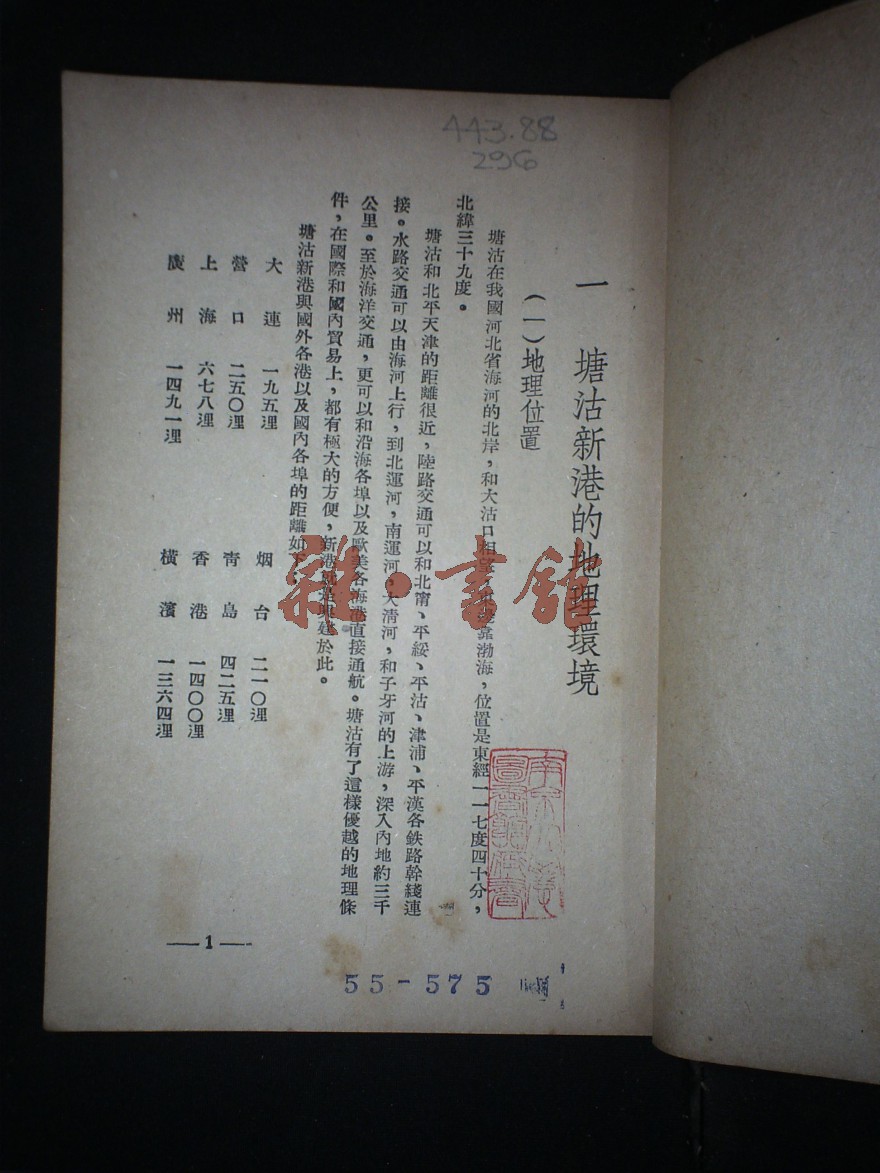 443.88
296
一　塘沽新港的地理環境
(一)地理位置
塘沽在我國河北省海河的北岸，和大沽口相望，靠渤海，位置是東經一一七度四十分，
北緯三十九度。
塘沽和北平天津的距離很近，陸路交通可以和北甯、平綏、平沽、津浦、平漢各鉄路幹綫連
接。水路交通可以由海河上行，到北運河，南運河，大清河，和子牙河的上游，深入內地約三千
公里。至於海洋交通，更可以和沿海各埠以及歐美各海港直接通航。塘沽有了這樣優越的地理條
件，在國際和國內貿易上，都有極大的方便，新港就是興建於此。
塘沽新港與國外各港以及國內各埠的距離如下
大連　一九五浬　烟台　二一〇浬
營口　二五〇浬　青島　四二五浬
上海　六七八浬　香港　一四〇〇浬
廣州　一四九一浬　橫濱　一三六四浬
雜·書館
—1—
55-575